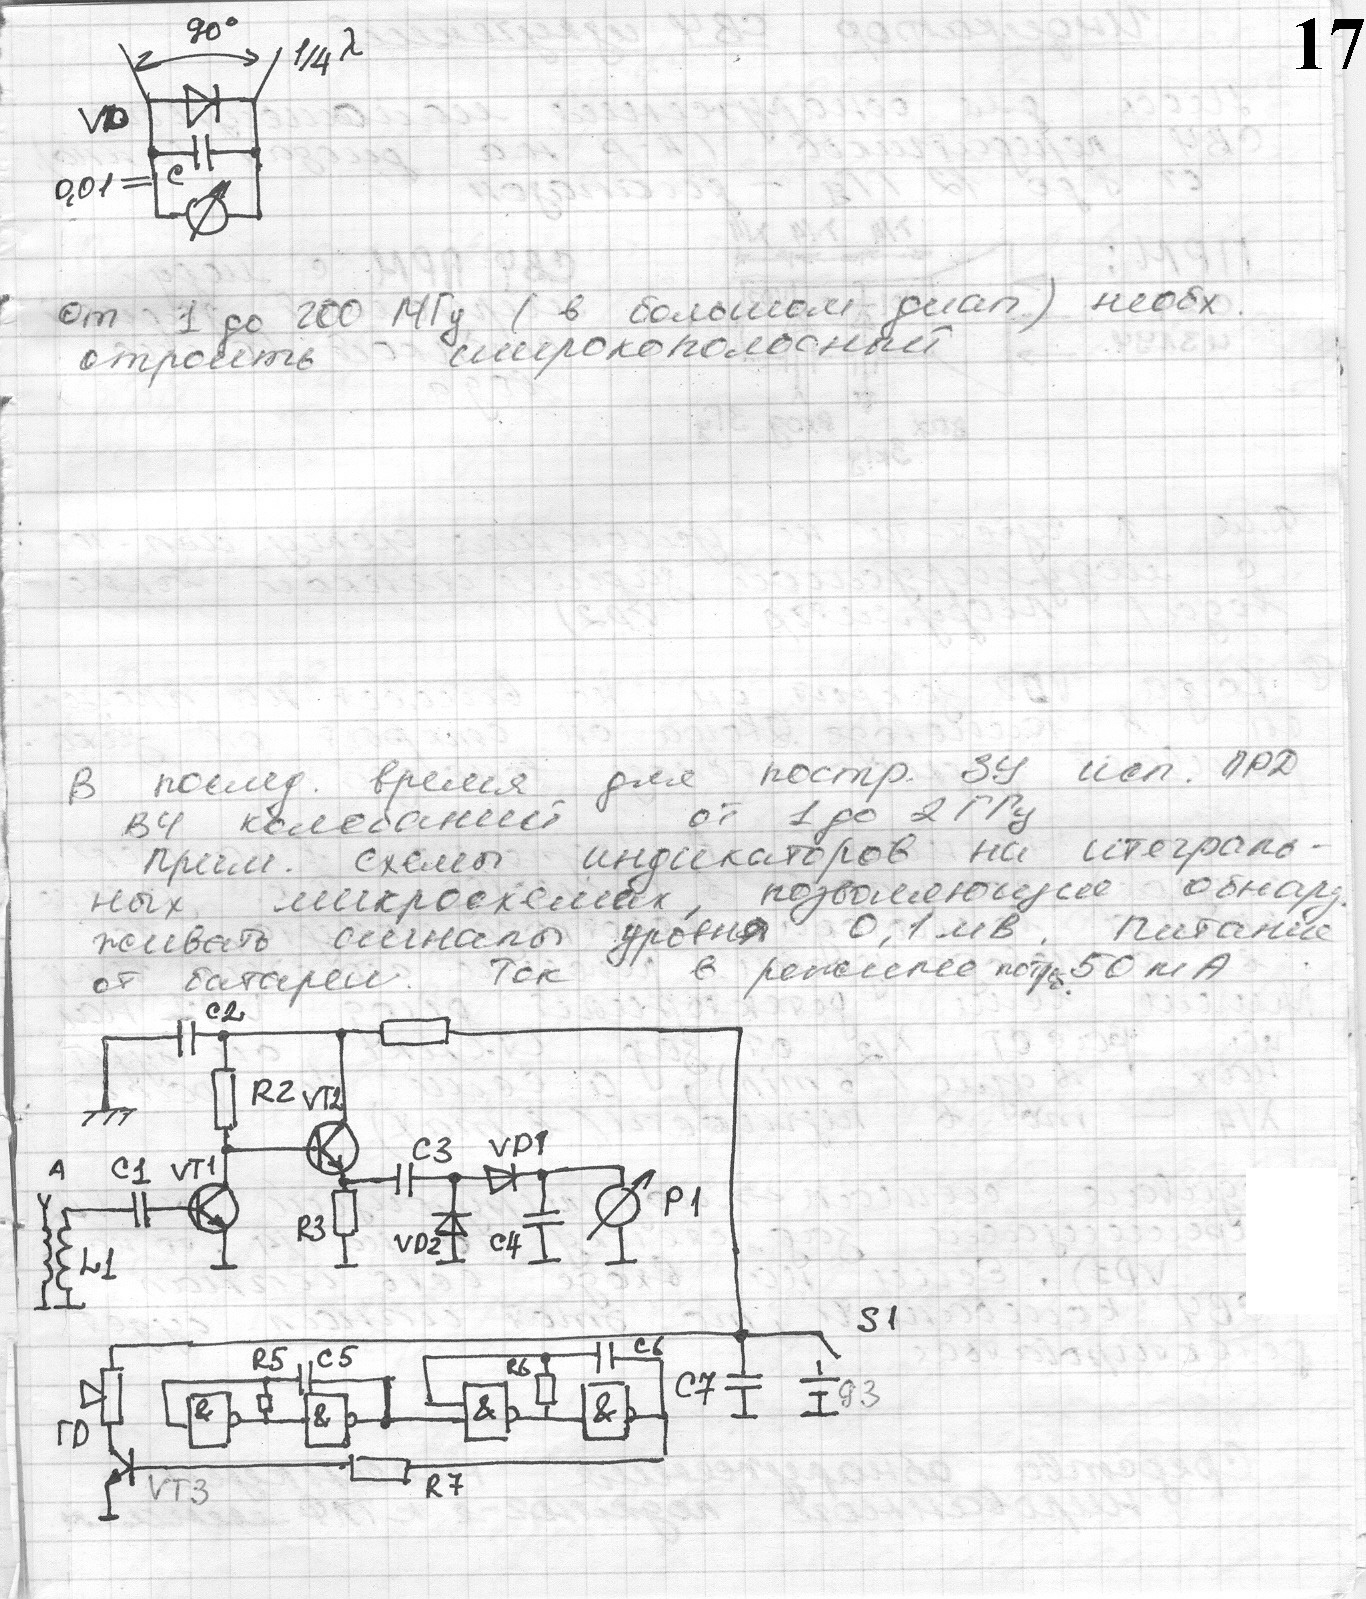 17
90°
1/4 λ
VD
C
0,01 =
От 1 до 200 МГц (в большом диап.) необх.
строить широкополосный
В послед. время для постр. ЗУ исп. ПРД
ВЧ колебаний от 1 до 2 ГГц
Прим. схемы индикаторов на итеграль-
ных микросхемах, позволяющие обнару
живать сигналы уровня 0,1 мв. Питание
от батареи. Ток в режиме потр. 50 mA
C2
R2 VT2
A C1 VT1 C3 VD1
R3 VD2 C4 P1
L1
S1
R5 C5 R6 C6
& & & & C7 93
ГD
VT3 R7